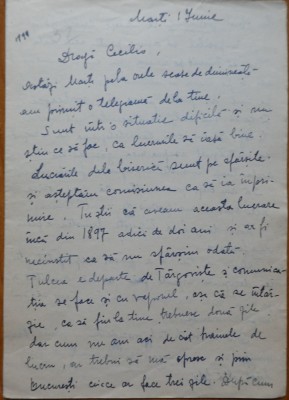 Marti 1 Iunie
1899
Dragă Cecilio,
Astăzi Marti pela orele șease de dimineață
am primit o telegramă dela tine.
Sunt într'o situatie dificilă și nu
știu ce să fac, ca lucrurile să iasă bine.
Lucrările dela biserică sunt pe sfârșite
și așteptăm comisiunea ca să ia în pri-
mire. Tu știi că aveam aceasta lucrare
încă din 1897 adică de doi ani și ar fi
necinstit ca să nu sfârșim odată.
Tulcea e departe de Târgoviște și comunica-
ția se face și cu vaporul, așa că se întâr-
zie, ca să fiu la tine trebuesc două zile
dar cum nu am aci de cât trainele de
lucru, ar trebui să mă opresc și prin
București ceiace ar face trei zile. După cum